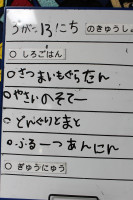 うがつ13にち
のきゅうし
○ しろごはん
○さつまいもぐらたん
○やさいのそてー
○どんぐりとまと
○ふるーつあんにん
○ ぎゅうにゅう